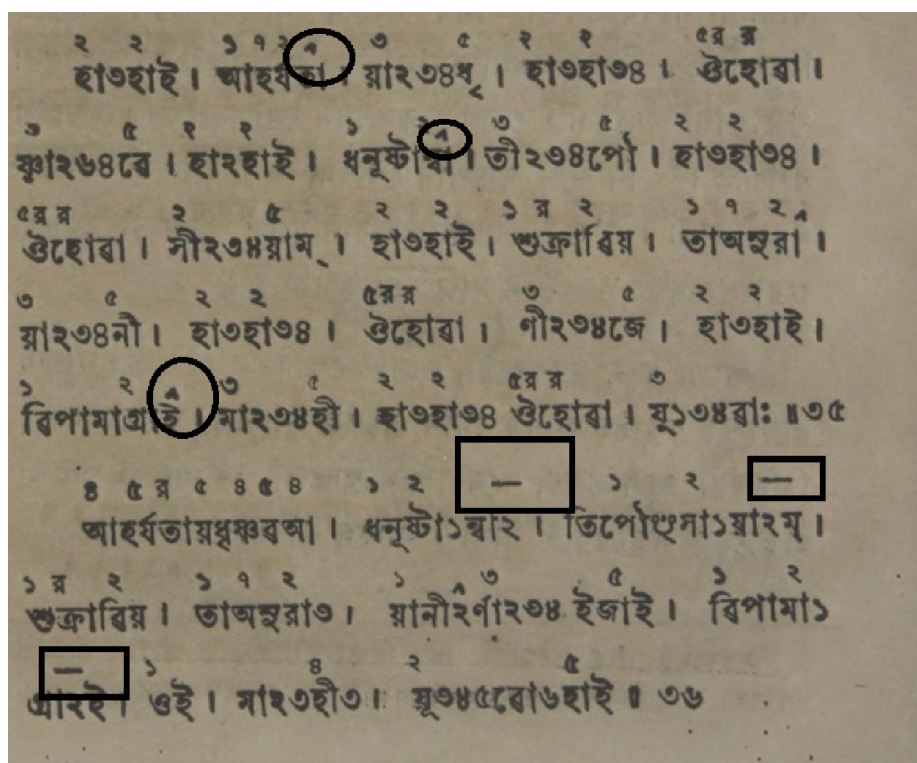 ২ ২ ১ ৭ ২ ^ ৩ ৫ ২ ২ ৫র র
হা৩হাই । আহর্যতা । য়া২৩৪ধৃ । হা৩হা৩৪ । ঔহোৱা ।
৩ ৫ ২ ২ ১ ২ ^ ৩ ৫ ২ ২
ষ্ণা২৬৪ৱে । হা২হাই । ধনূষ্টান্বা । তী২৩৪পৌ । হা৩হা৩৪ ।
৫র র ২ ৫ ২ ২ ১ র ২ ১ ৭ ২ ^
ঔহোৱা । সী২৩৪য়াম্ । হা৩হাই । শুক্রাৱিয় । তাঅসুরা ।
৩ ৫ ২ ২ ৫র র ৩ ৫ ২ ২
য়া২৩৪নী । হা৩হা৩৪ । ঔহোৱা । ণী২৩৪জে । হা৩হাই ।
১ ২ ^ ৩ ৫ ২ ২ ৫র র ৩
ৱিপামাগ্রাই । মা২৩৪হী । হা৩হা৩৪ ঔহোৱা । যূ১৩৪ৱাঃ ॥৩৫
৪ ৫ র ৫ ৪ ৫ ৪ ১ ২ — ১ ২ —
আহর্যতায়ধৃষ্ণৱআ । ধনূষ্টা১ন্বা২ । তিপৌংসা১য়া২ম্ ।
১ র ২ ১ ৭ ২ ১ ^ ৩ ৫ ১ ২
শুক্রাৱিয় । তাঅসুরা৩ । য়ানী২র্ণা২৩৪ ইজাই । ৱিপামা১
— ১ ৪ ২ ৫
গ্রা২ই । ওই । মা২৩হী৩ । যূ৩৪৫ৱো৬হাই ॥ ৩৬